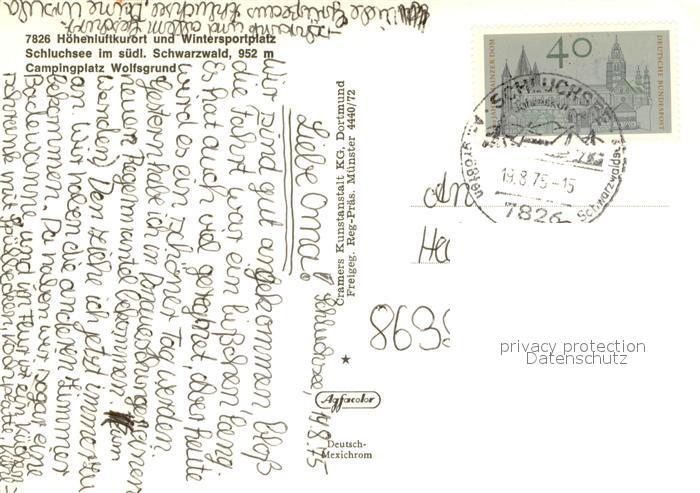 7826 Höhenluftkurort und Wintersportplatz
Schluchsee im südl. Schwarzwald, 952 m
Campingplatz Wolfsgrund
Schluchsee, 19.8.75
Liebe Oma!
Wir sind gut angekommen, bloß
die Fahrt war ein bißchen lang.
Es hat auch viel geregnet, aber heute
wird es ein schöner Tag werden.
Gestern habe ich in Donaueschingen einen
neuen Regenmantel bekommen
Den ziehe ich jetzt immer
an. Wir haben die anderen Zimmer
bekommen. Da haben wir sogar eine
Badewanne und im Flur ist ein Küchen=
schrank mit Spülbecken, Kochplatte
Kühlschrank und allem Geschirr.
Viele Grüße aus Schluchsee, Deine Ursula
Cramers Kunstanstalt KG, Dortmund
Freigeg. Reg-Präs. Münster 4440/72
Agfacolor
Deutsch-
Mexichrom
40
DEUTSCHE BUNDESPOST
MAINZER DOM
SCHLUCHSEE
19.8.75-15
7826
Schwarzwaldes
An
He
869
privacy protection
Datenschutz